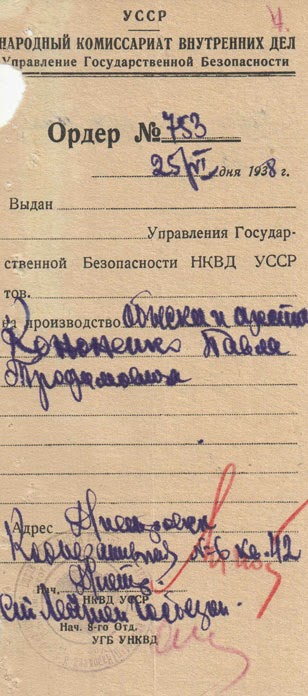 УССР
НАРОДНЫЙ КОМИССАРИАТ ВНУТРЕННИХ ДЕЛ
Управление Государственной Безопасности
Ордер № 753
25/VI дня 1938
Выдан
Управления Государ-
ственной Безопасности НКВД УССР
тов.
на производство обыска и ареста
Кононенко Павла
Трофимовича
Адрес
кв. 42
Нач.
НКВД УССР
Ст. Лейтен. Госбезоп.
Нач. 8-го Отд.
УГБ УНКВД